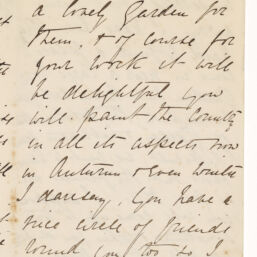 a lovely Garden for
them, & of course for
your work it will
be delightful you
will paint the Country
in all its aspects now
in Autumn & Even Winter
I daresay, you have a
nice circle of friends
round you too so I